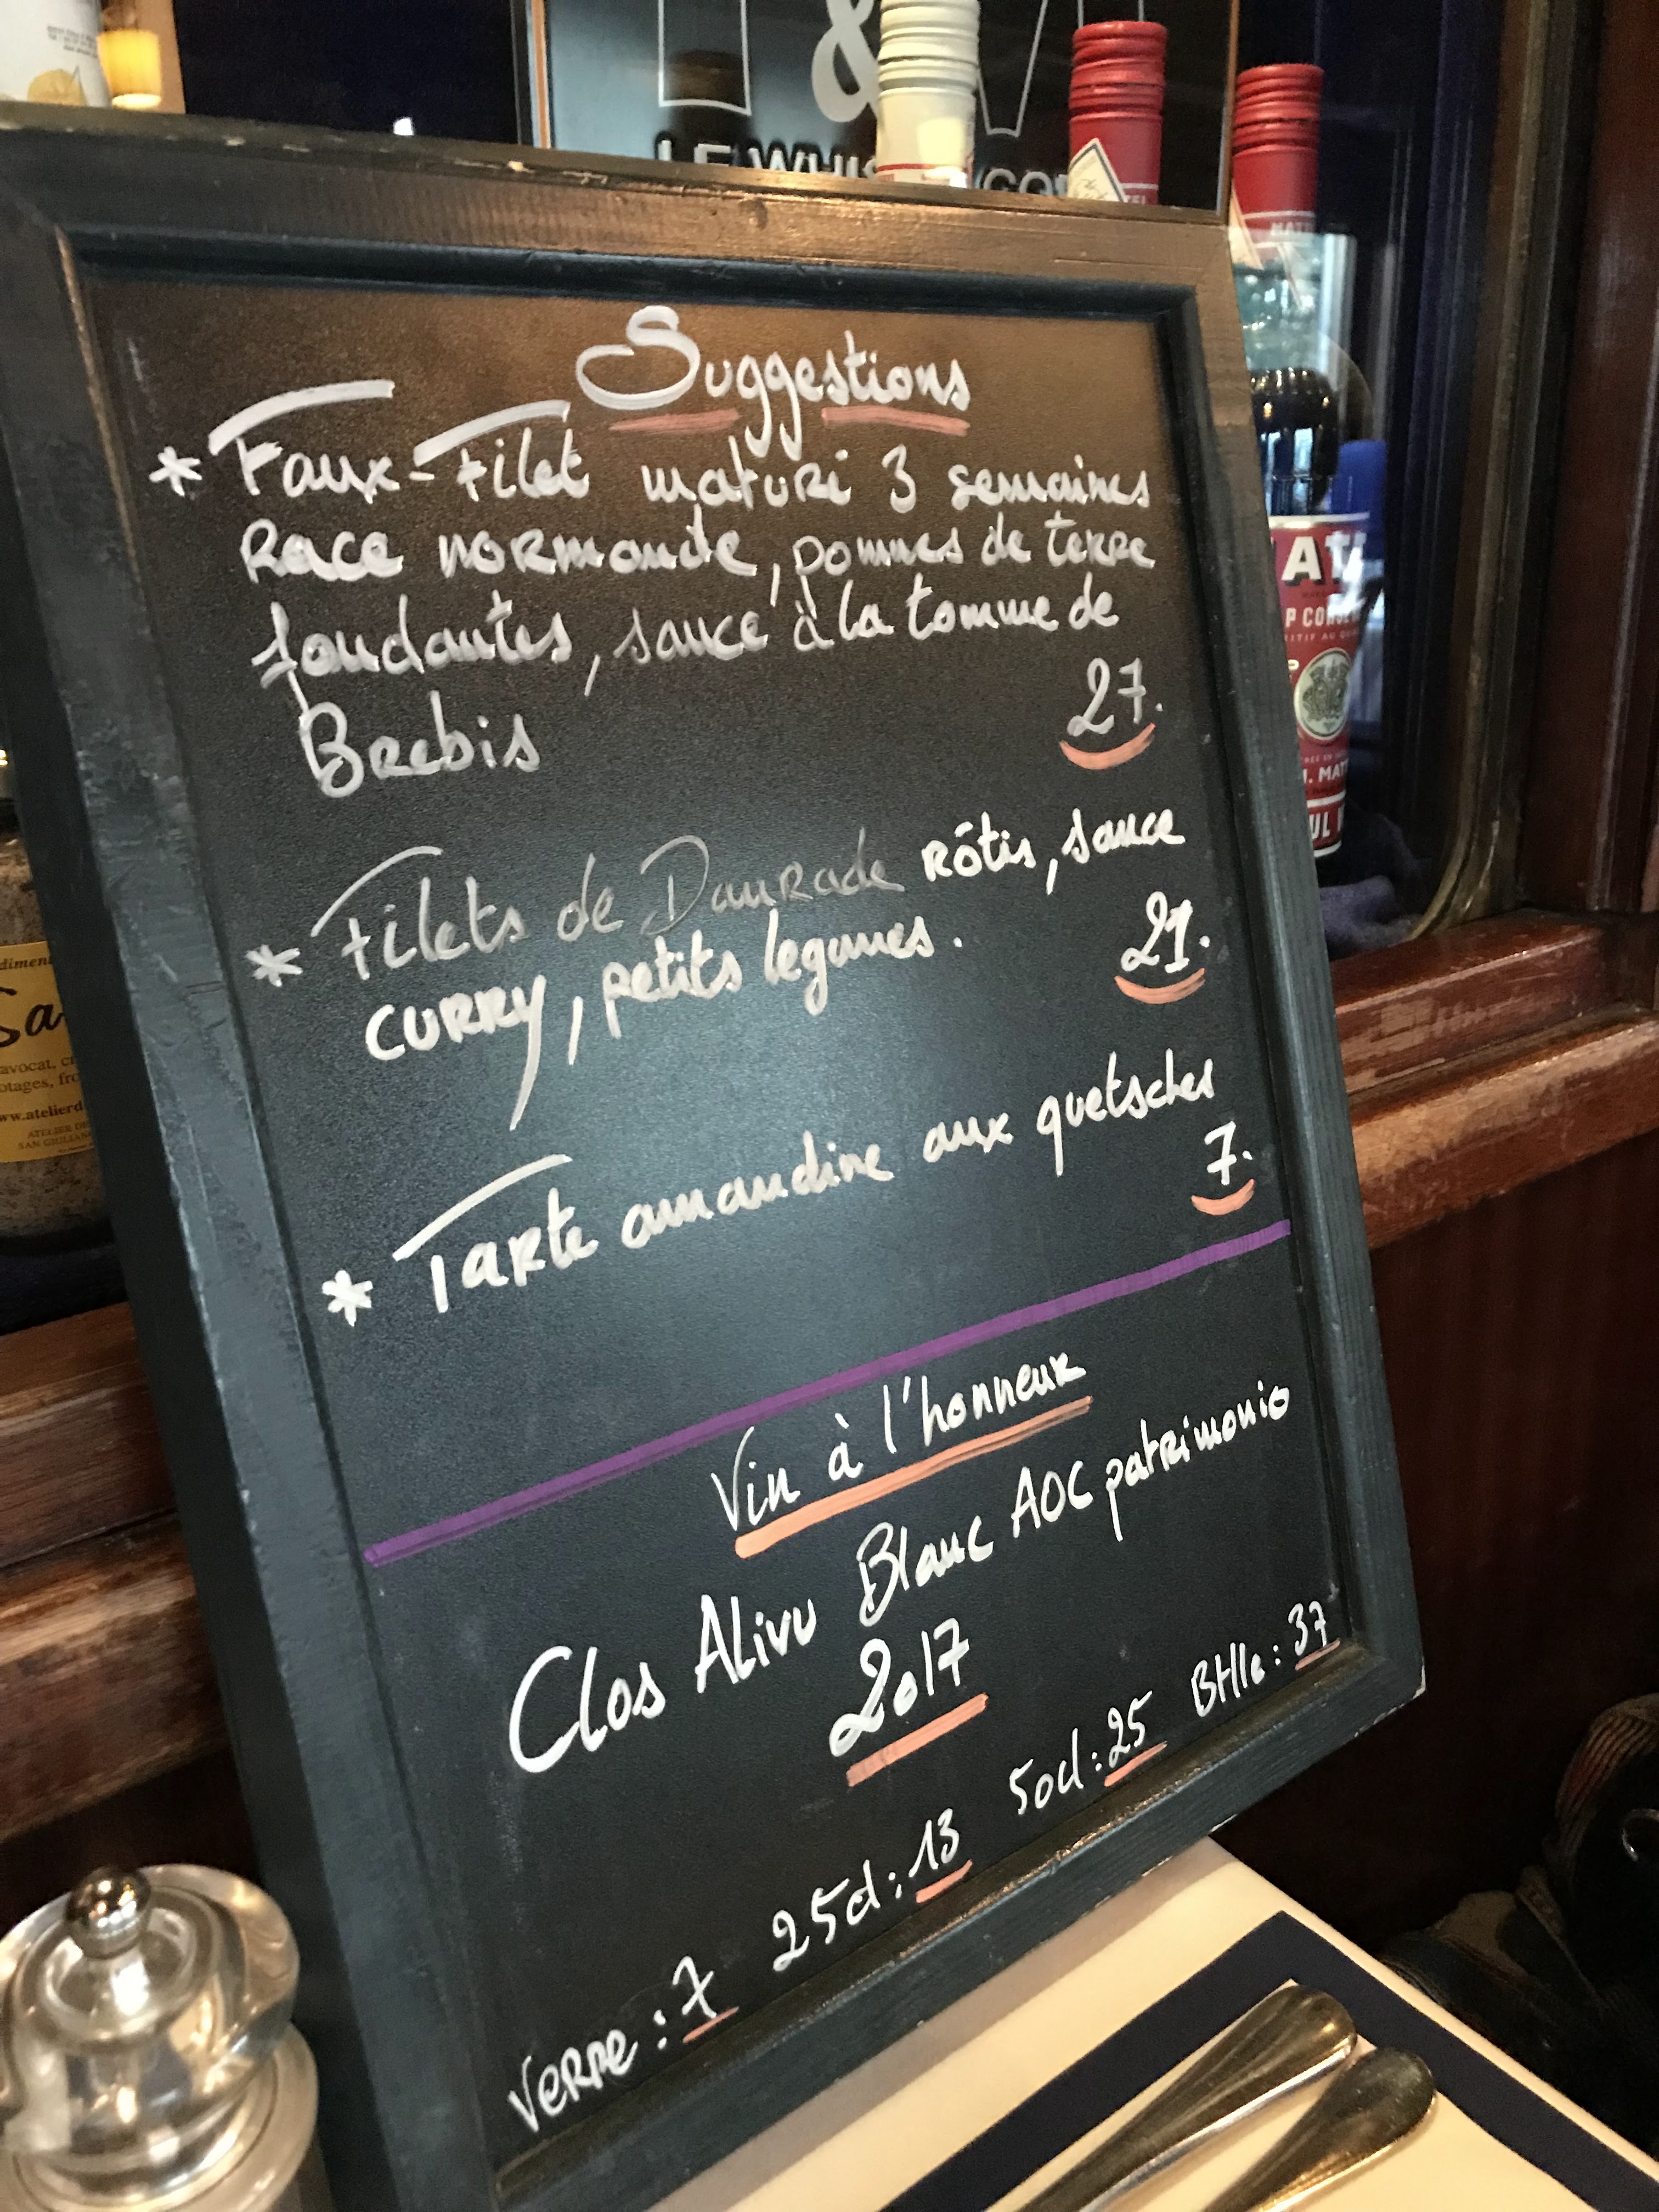 &
Suggestions
* Faux-Filet maturé 3 semaines
Race normande, pommes de terre
fondantes, sauce à la tomme de
Brebis 27.
* Filets de Daurade rôtis, sauce
curry, petits legumes. 21.
* Tarte amandine aux quetsches
7.
Vin à l'honneur
Clos Alivu Blanc AOC patrimonio
2017
Verre : 7 25cl : 13 50cl : 25 Btlle : 37
avocat,
ATELIER